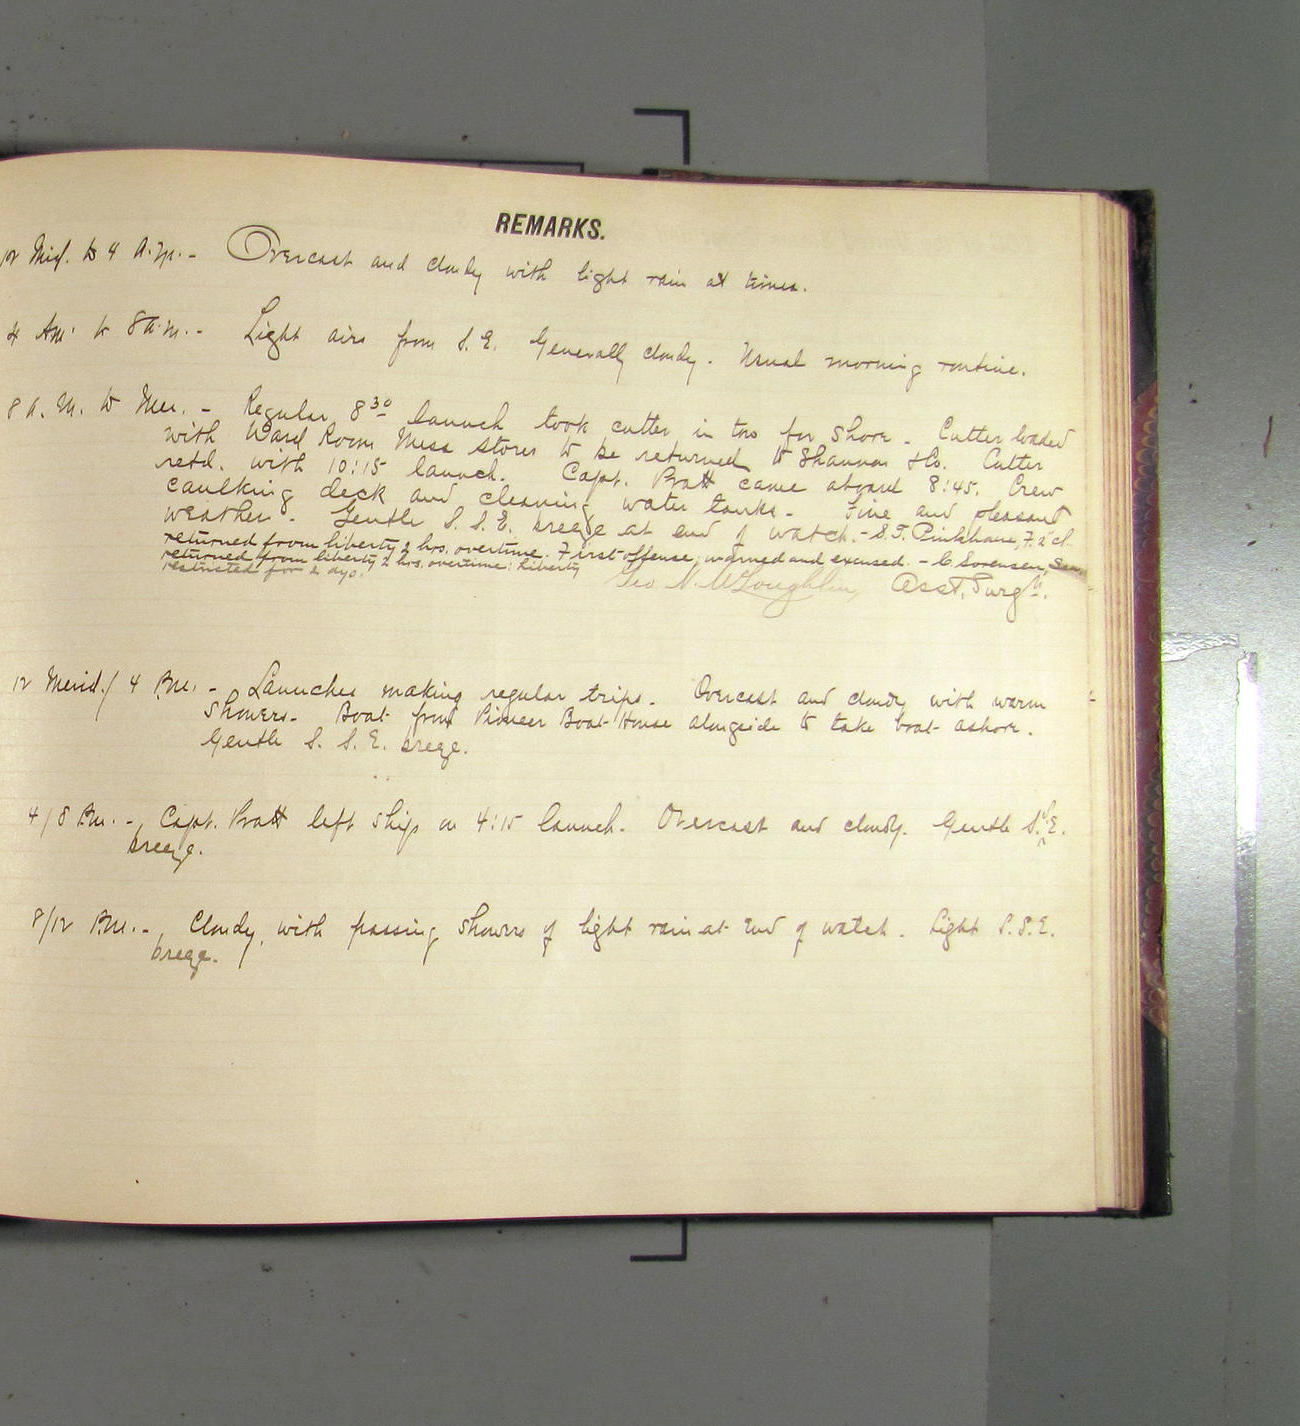 REMARKS.
12 Mid. to 4 A.M. - Overcast and cloudy with light rain at times.
4 AM. to 8 A.M. - Light airs from S.E. Generally cloudy. Usual morning routine.
8 A.M. to Mer. - Regular 8 30 launch took cutter in tow for shore. Cutter loaded
with Ward Room Mess stores to be returned to Shannon & Co. Cutter
retd. with 10:15 launch. Capt. Pratt came aboard 8:45. Crew
caulking deck and cleaning water tanks. Fine and pleasant
weather. Gentle S. S. E. breeze at end of watch. - S. T. Pinkham, F. 2 cl.
returned from liberty 2 hrs. overtime. First offense, warned and excused. - C. Sorensen,
returned from liberty 2 hrs. overtime: Liberty
restricted for 2 dys.
Geo. N. McLoughlin, Asst. Surgn.
12 Merid. / 4 P.M. - Launches making regular trips. Overcast and cloudy with warm
showers. Boat from Pioneer Boat House alongside to take boat ashore.
Gentle S. S. E. breeze.
4/8 P.M. - Capt. Pratt left ship on 4:15 launch. Overcast and cloudy. Gentle S.S.E.
breeze.
8/12 P.M. - Cloudy, with passing showers of light rain at end of watch. Light S.S.E.
breeze.